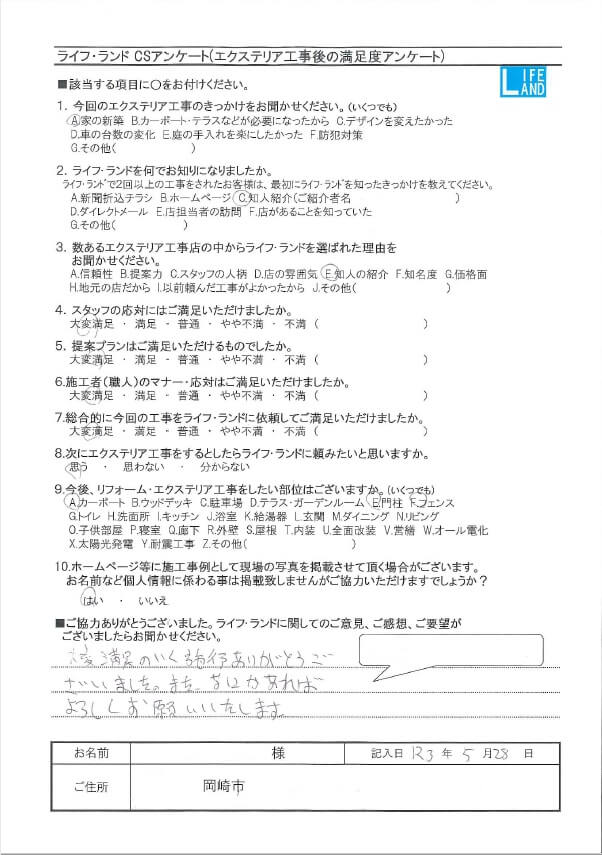 ライフ・ランド CSアンケート(エクステリア工事後の満足度アンケート)
■該当する項目に〇をお付けください。
LIFE LAND
1. 今回のエクステリア工事のきっかけをお聞かせください。(いくつでも)
A.家の新築 B.カーポート・テラスなどが必要になったから C.デザインを変えたかった
D.車の台数の変化 E.庭の手入れを楽にしたかった F.防犯対策
G.その他( )
2. ライフ・ランドを何でお知りになりましたか。
ライフ・ランドで2回以上の工事をされたお客様は、最初にライフ・ランドを知ったきっかけを教えてください。
A.新聞折込チラシ B.ホームページ C.知人紹介(ご紹介者名 )
D.ダイレクトメール E.店担当者の訪問 F.店があることを知っていた
G.その他( )
3. 数あるエクステリア工事店の中からライフ・ランドを選ばれた理由を
お聞かせください。
A.信頼性 B.提案力 C.スタッフの人柄 D.店の雰囲気 E.知人の紹介 F.知名度 G.価格面
H.地元の店だから I.以前頼んだ工事がよかったから J.その他( )
4. スタッフの応対にはご満足いただけましたか。
大変満足 ・ 満足 ・ 普通 ・ やや不満 ・ 不満 ( )
5. 提案プランはご満足いただけるものでしたか。
大変満足 ・ 満足 ・ 普通 ・ やや不満 ・ 不満 ( )
6.施工者(職人)のマナー・応対はご満足いただけましたか。
大変満足 ・ 満足 ・ 普通 ・ やや不満 ・ 不満 ( )
7.総合的に今回の工事をライフ・ランドに依頼してご満足いただけましたか。
大変満足 ・ 満足 ・ 普通 ・ やや不満 ・ 不満 ( )
8.次にエクステリア工事をするとしたらライフ・ランドに頼みたいと思いますか。
思う ・ 思わない ・ 分からない
9.今後、リフォーム・エクステリア工事をしたい部位はございますか。(いくつでも)
A.カーポート B.ウッドデッキ C.駐車場 D.テラス・ガーデンルーム E.門柱 F.フェンス
G.トイレ H.洗面所 I.キッチン J.浴室 K.給湯器 L.玄関 M.ダイニング N.リビング
O.子供部屋 P.寝室 Q.廊下 R.外壁 S.屋根 T.内装 U.全面改装 V.営繕 W.オール電化
X.太陽光発電 Y.耐震工事 Z.その他( )
10.ホームページ等に施工事例として現場の写真を掲載させて頂く場合がございます。
お名前など個人情報に係わる事は掲載致しませんがご協力いただけますでしょうか?
はい ・ いいえ
■ご協力ありがとうございました。ライフ・ランドに関してのご意見、ご感想、ご要望が
ございましたらお聞かせください。
大変満足のいく施行ありがとうご
ざいました。また、なにかあれば
よろしくお願いいたします。
お名前 様 記入日 R3 年 5 月 28 日
ご住所 岡崎市